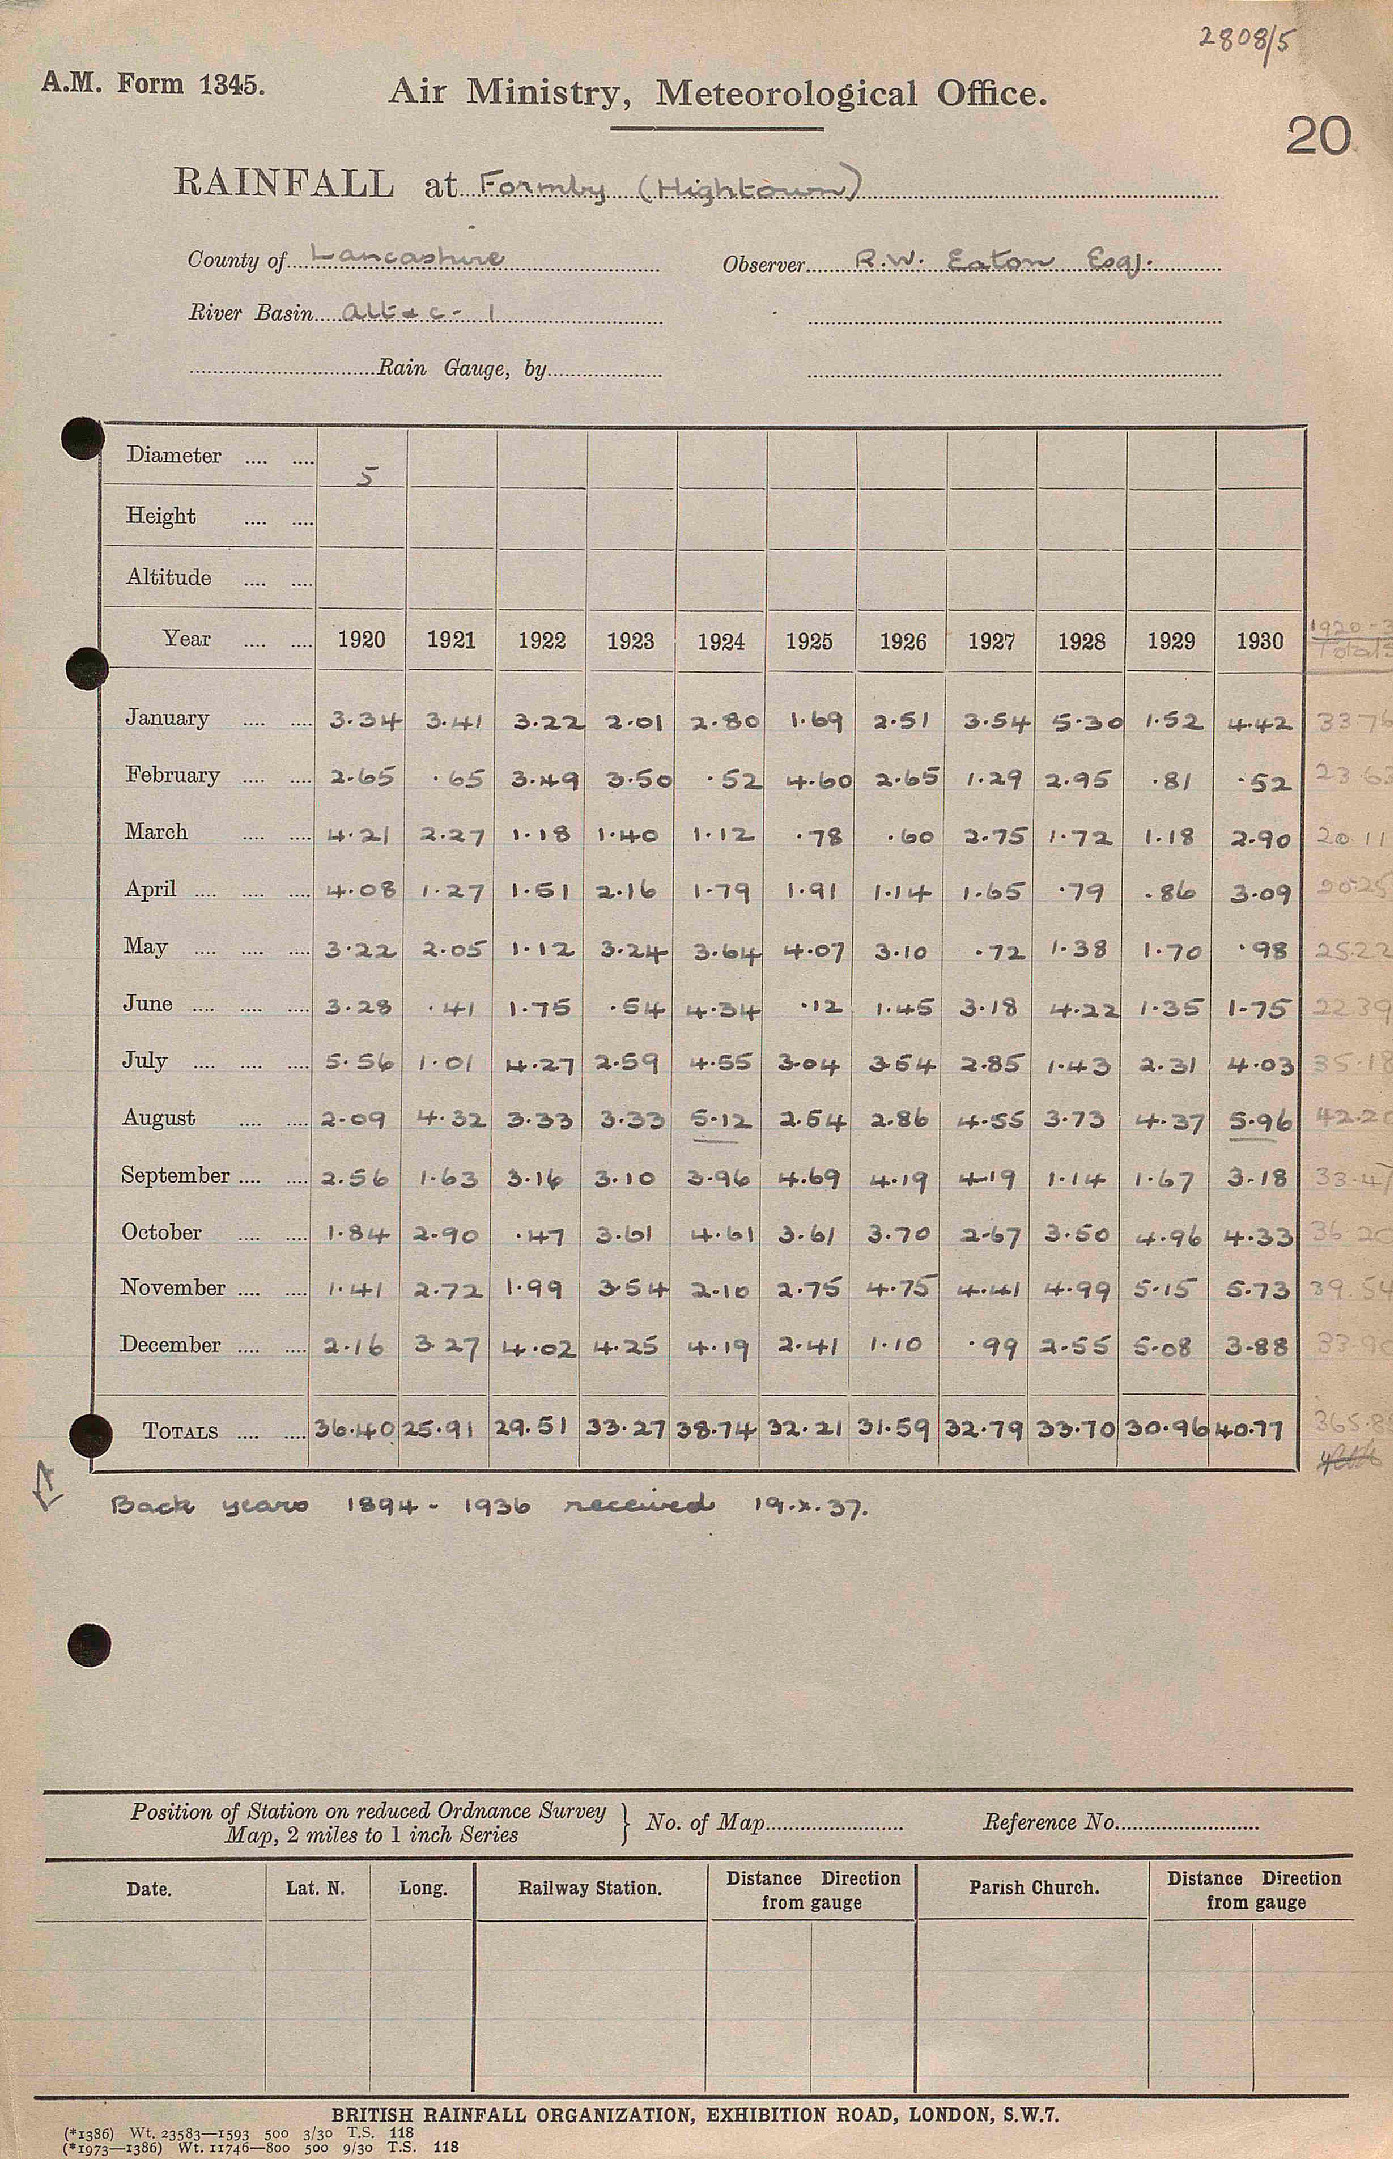 2808/5
A.M. Form 1345.
Air Ministry, Meteorological Office.
20
RAINFALL at Formby (Hightown)
County of Lancashire Observer R.W. Eaton Esq.
River Basin Alt & c - 1
Rain Gauge, by
Diameter 5
Height
Altitude
Year 1920 1921 1922 1923 1924 1925 1926 1927 1928 1929 1930 1920-3
Totals
January 3.34 3.41 3.22 2.01 2.80 1.69 2.51 3.54 5.30 1.52 4.42 33.76
February 2.65 .65 3.49 3.50 .52 4.60 2.65 1.29 2.95 .81 .52 23.63
March 4.21 2.27 1.18 1.40 1.12 .78 .60 2.75 1.72 1.18 2.90 20.11
April 4.08 1.27 1.51 2.16 1.79 1.91 1.14 1.65 .79 .86 3.09 20.25
May 3.22 2.05 1.12 3.24 3.64 4.07 3.10 .72 1.38 1.70 .98 25.22
June 3.28 .41 1.75 .54 4.34 .12 1.45 3.18 4.22 1.35 1.75 22.39
July 5.56 1.01 4.27 2.59 4.55 3.04 3.54 2.85 1.43 2.31 4.03 35.18
August 2.09 4.32 3.33 3.33 5.12 2.54 2.86 4.55 3.73 4.37 5.96 42.20
September 2.56 1.63 3.16 3.10 3.96 4.69 4.19 4.19 1.14 1.67 3.18 33.47
October 1.84 2.90 .47 3.61 4.61 3.61 3.70 2.67 3.50 4.96 4.33 36.20
November 1.41 2.72 1.99 3.54 2.10 2.75 4.75 4.41 4.99 5.15 5.73 39.54
December 2.16 3.27 4.02 4.25 4.19 2.41 1.10 .99 2.55 5.08 3.88 33.90
TOTALS 36.40 25.91 29.51 33.27 38.74 32.21 31.59 32.79 33.70 30.96 40.77 365.85
Back years 1894 - 1936 received 19.x.37.
Position of Station on reduced Ordnance Survey Map, 2 miles to 1 inch Series } No. of Map Reference No.
Date. Lat. N. Long. Railway Station. Distance Direction from gauge Parish Church. Distance Direction from gauge
BRITISH RAINFALL ORGANIZATION, EXHIBITION ROAD, LONDON, S.W.7.
(*1386) Wt. 23583—1593 500 3/30 T.S. 118
(*1973—1386) Wt. 11746—800 500 9/30 T.S. 118